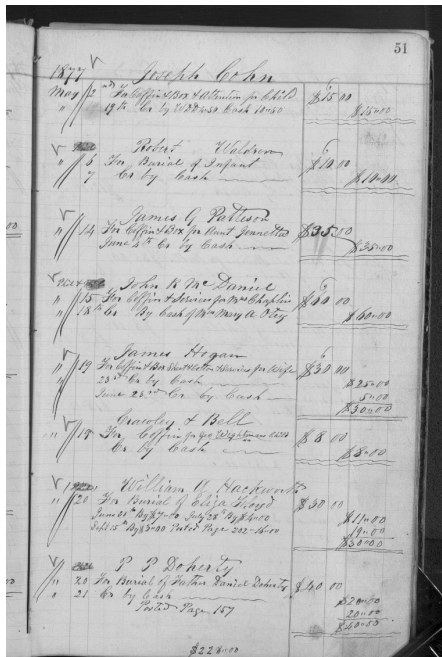 51
1877 Joseph Cohn
May 2nd For Coffin & Box & Attention for Child $15 00
" 19th Cr by W 4.50 Cash 10.50 $15.00
Robert Waldron
" 6 For Burial of Infant $10 00
7 Cr by Cash $10.00
James G Patteson
" 14 For Coffin & Box for Aunt Jeanetta $35 00
June 4th Cr by Cash $35.00
John R McDaniel
" 15 For Coffin & Services for Mrs Chaplin $60 00
" 18th Cr By Cash of Mrs Mary A Otey $60.00
James Hogan
" 19 For Coffin & Box & Services for Wife $30 00
" 23rd Cr by Cash $25.00
June 23rd Cr by Cash 5.00
$30.00
Crawley & Bell
" 19 For Coffin for Geo $8 00
Cr by Cash $8.00
William Hackworth
" 20 For Burial of Eliza Floyd $30 00
June 25th By $7.00 July 28th By $4.00 $11.00
Sept 15th By $3.00 Posted Page 202 16.00 19.00
$30.00
P P Doherty
" 20 For Burial of Father Daniel Doherty $40 00
" 21 Cr by Cash $20.00
Posted Page 157 20.00
$40.00
$228.00